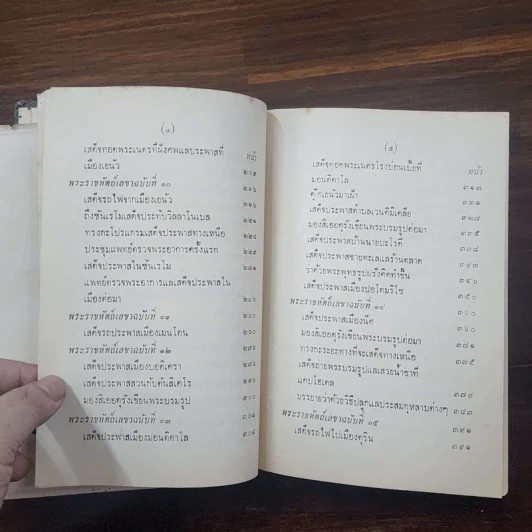 (๔)
หน้า
เสด็จทอดพระเนตรที่ฝังศพแลประพาสที่
เมืองเยนัว ๒๐๕
พระราชหัตถ์เลขาฉบับที่ ๑๐ ๒๑๖
เสด็จรถไฟจากเมืองเยนัว ๒๑๖
ถึงซันเรโมเสด็จประทับวิลลาโนเบล
ทรงกะโปรแกรมเสด็จประพาสทางเหนือ
ประชุมแพทย์ตรวจพระอาการครั้งแรก
เสด็จประพาสในซันเรโม
แพทย์ตรวจพระอาการแลเสด็จประพาสใน
เมืองต่อมา ๒๔๖
พระราชหัตถ์เลขาฉบับที่ ๑๑
เสด็จรถประพาสเมืองเมนโตน
พระราชหัตถ์เลขาฉบับที่ ๑๒ ๒๗๖
เสด็จประพาสเมืองบอดิเครา
เสด็จประพาสสวนกับตันสิเครโ
มองสิเออคุรังเขียนพระบรมรูป
พระราชหัตถ์เลขาฉบับที่ ๑๓ ๓๐๘
เสด็จประพาสเมืองมอนติคาโล ๓๐๘
(๕)
หน้า
เสด็จทอดพระเนตรโรงบ่อนเบี้ยที่
มอนติคาโล ๓๑๓
ดุ๊กเยนัวมาเฝ้า ๓๒๑
เสด็จประพาสตำบลเวนติมิเคลีย ๓๒๘
มองสิเออคุรังเขียนพระบรมรูปต่อมา ๓๓๕
เสด็จประพาสบ้านนายอะไรดี ๓๓๘
เสด็จประพาสชายทะเลแลร้านตลาด ๓๔๓
ว่าด้วยพระพุทธรูปฝรั่งคิดทำขึ้น
เสด็จประพาสเมืองปอโตมริโซ ๓๕๐
พระราชหัตถ์เลขาฉบับที่ ๑๔
เสด็จประพาสเมืองนีศ
มองสิเออคุรังเขียนพระบรมรูปต่อมา
ทรงกะระยะทางที่จะเสด็จทางเหนือ ๓๗๕
เสด็จถ่ายพระบรมรูปแลเสวยน้ำชาที่
แคปโฮเตล ๓๗๙
บรรยายว่าด้วยวิธีปลูกแลประสมกุหลาบต่างๆ
พระราชหัตถ์เลขาฉบับที่ ๑๕ ๓๙๑
เสด็จรถไฟไปเมืองตุริน ๓๙๑